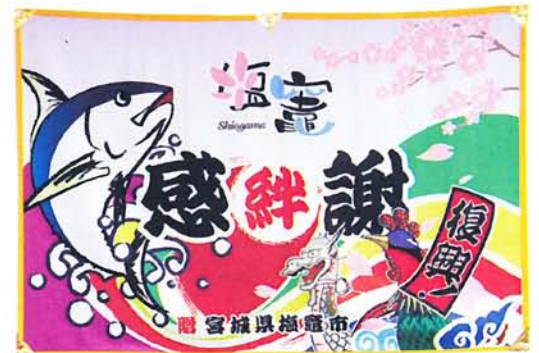 塩竈
Shiogama
感絆謝
復興!
贈 宮城県塩竈市